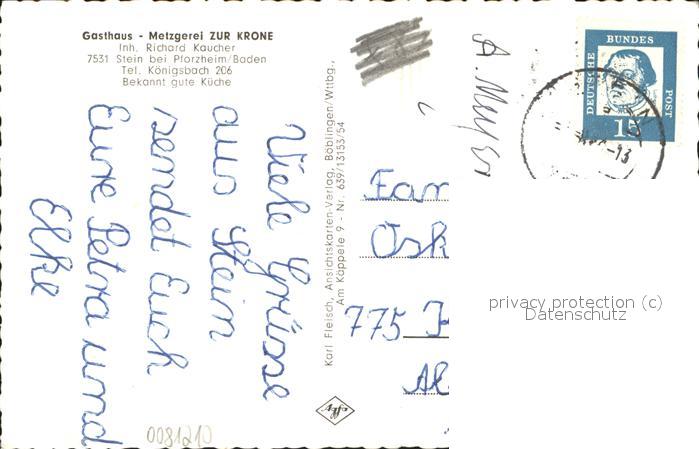 Gasthaus - Metzgerei ZUR KRONE
Inh. Richard Kaucher
7531 Stein bei Pforzheim/Baden
Tel. Königsbach 206
Bekannt gute Küche
Viele Grüsse
aus Stein
sendet Euch
Eure Petra und
Elke
Karl Fleisch, Ansichtskarten-Verlag, Böblingen/Wttbg.,
Am Käppele 9 - Nr. 639/13153/54
Agfa
0081210
DEUTSCHE
BUNDES
POST
15
Fam
Osk
775
privacy protection (c)
Datenschutz